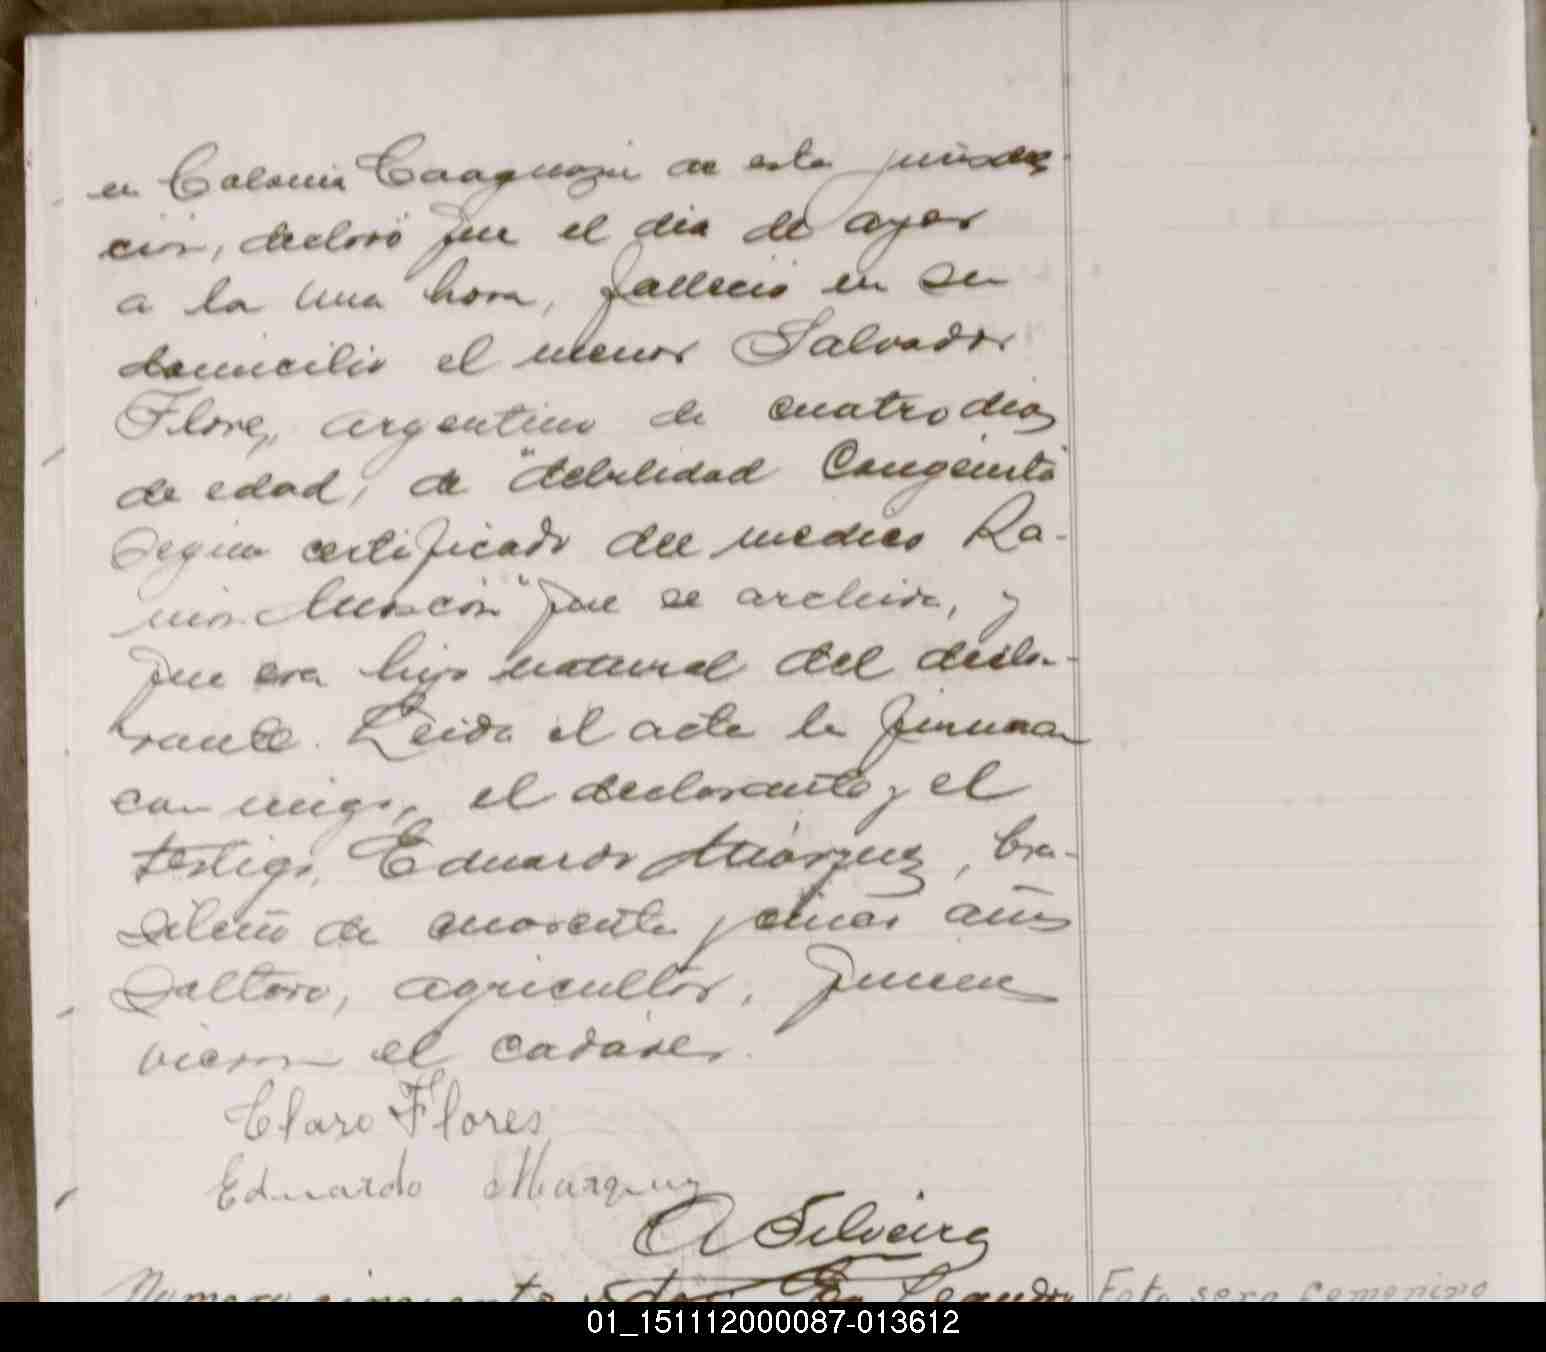 en Colonia Caaguazú de esta jurisdic-
cion, declaró que el dia de ayer
a la una hora, falleció en su
domicilio el menor Salvador
Flores, argentino de cuatro dias
de edad, de "debilidad Congenita
segun certificado del medico Ra-
mon " que se archiva, y
que era hijo natural del decla-
rante. Leida el acta la firman
conmigo, el declarante y el
testigo, Eduardo Márquez, bra-
sileño de cuarenta y años
Soltero, agricultor, quienes
vieron el cadáver.
Claro Flores
Eduardo Marquez
A Silveira
Numero cincuenta y dos En Leandro
Feto sexo femenino
01_151112000087-013612